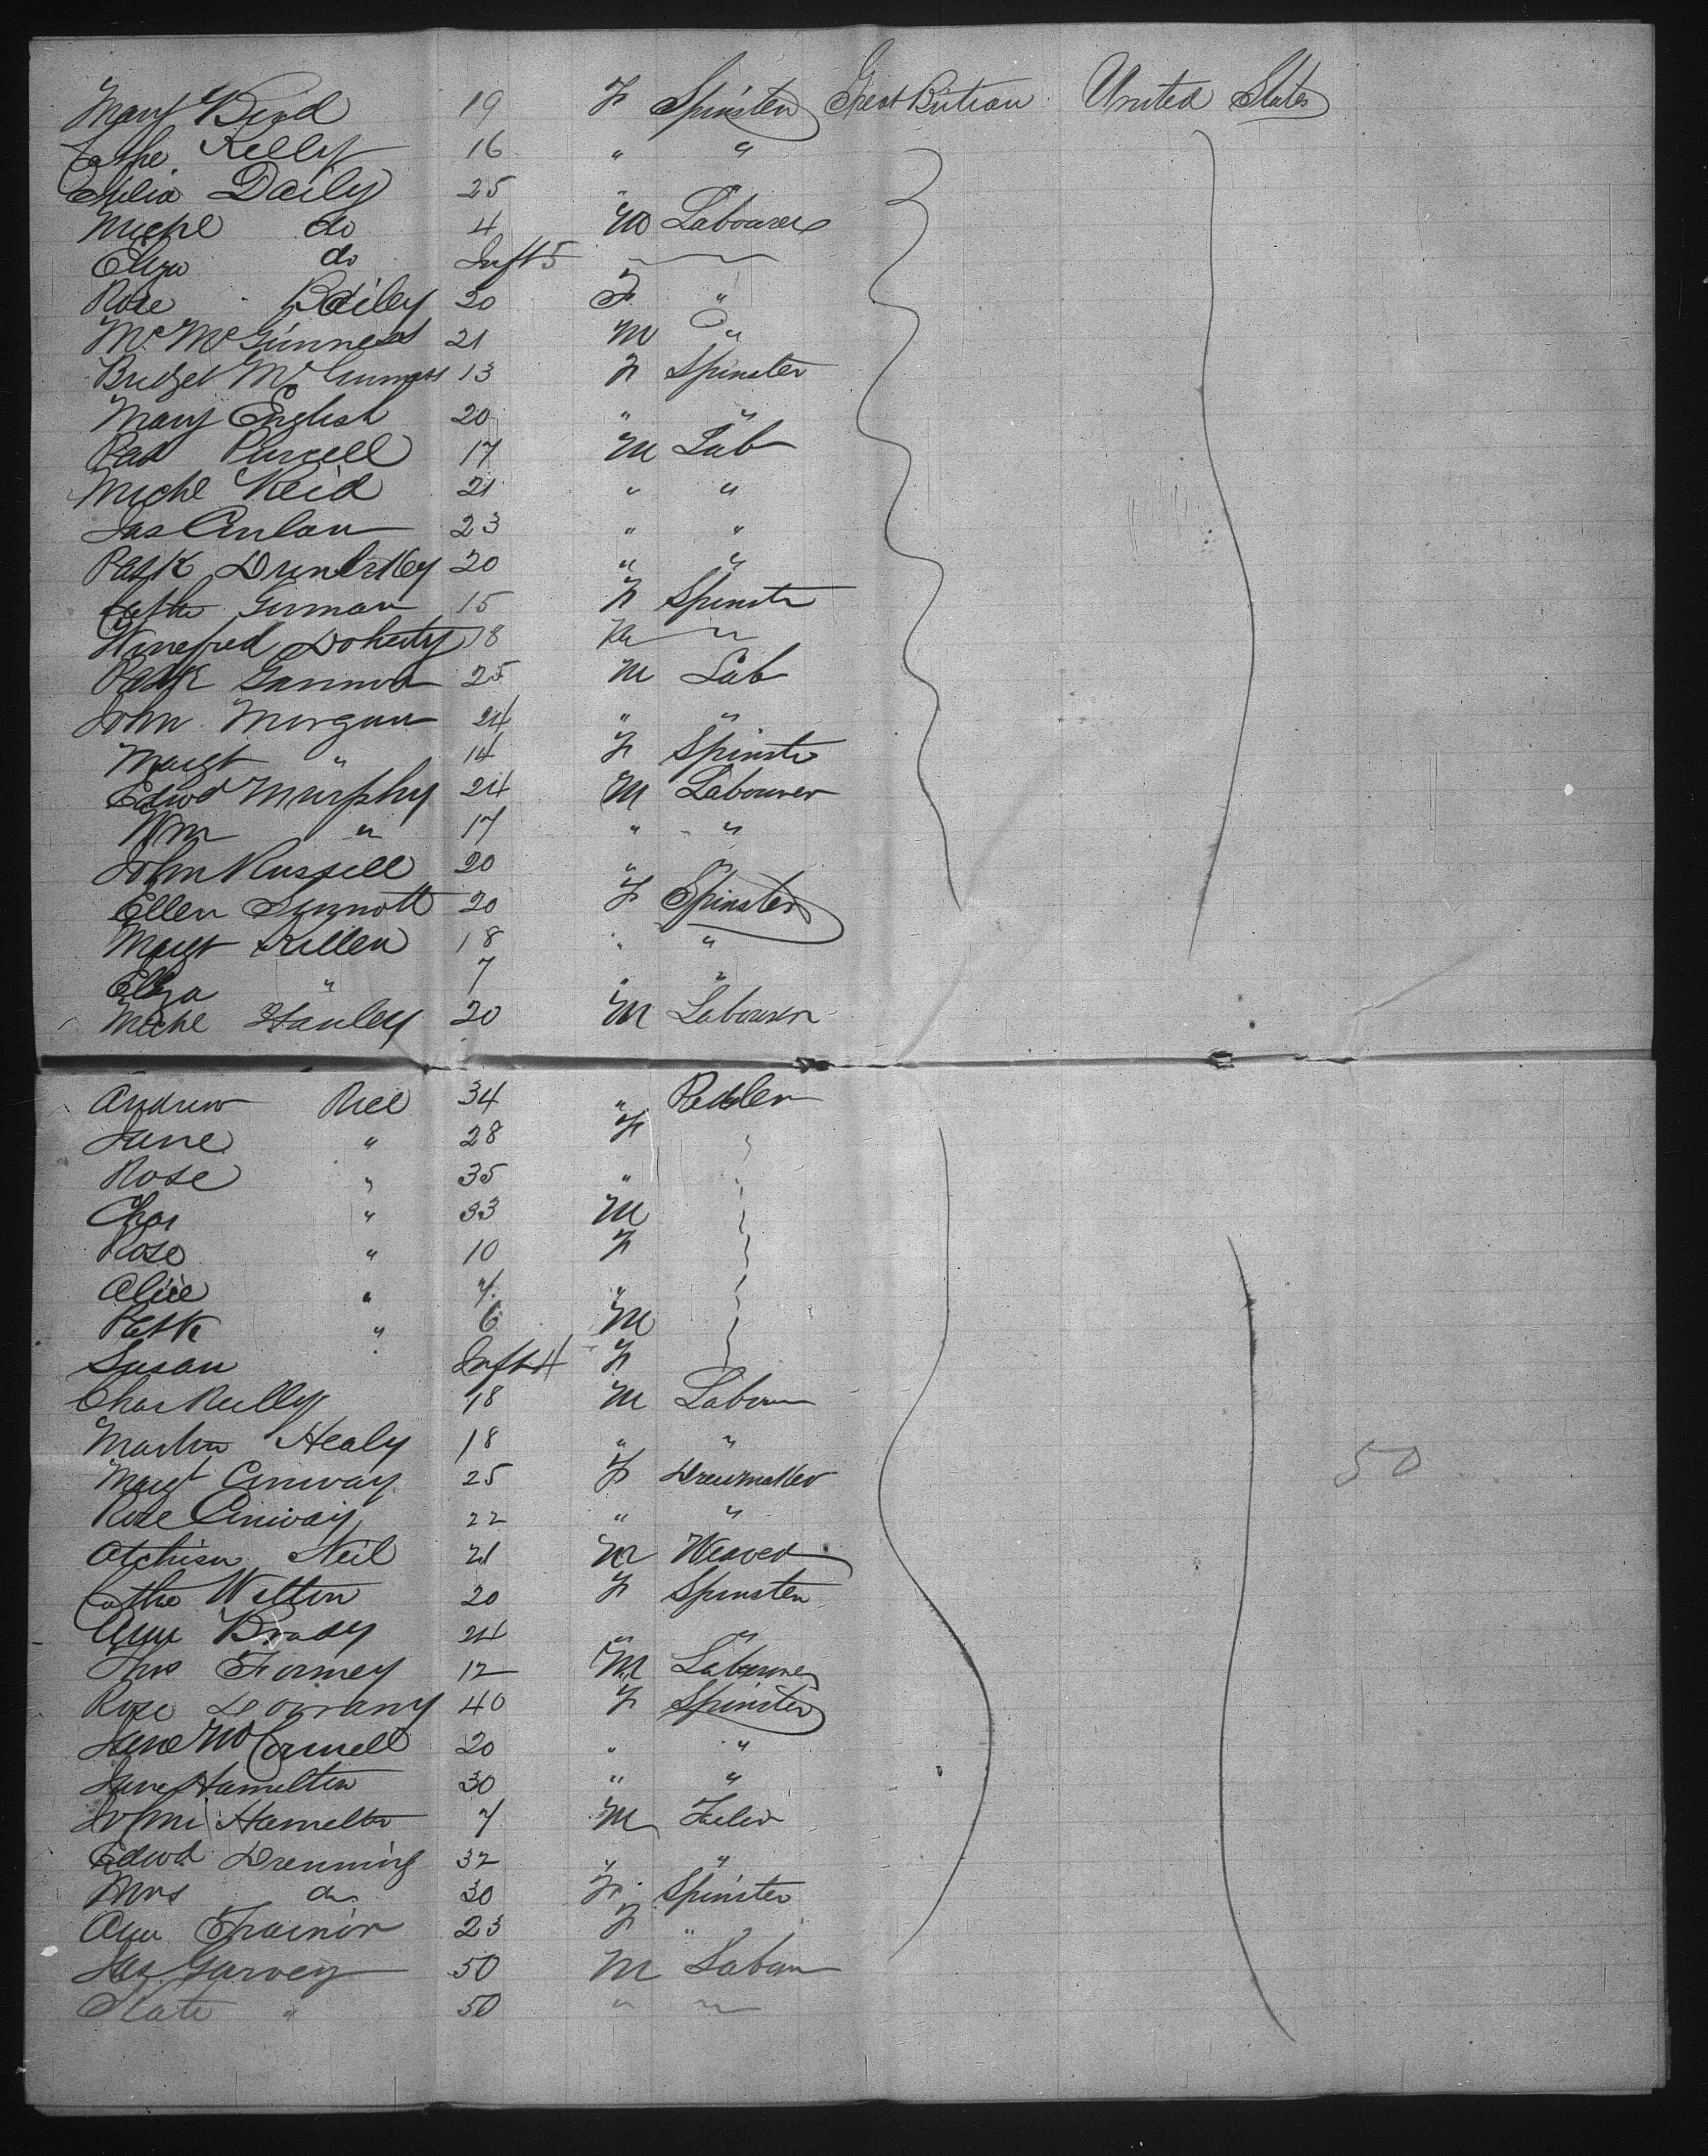 Mary Bird 19 F Spinster Great Britian United States
Cathe Kelly 16 " "
Delia Daily 25 "
Michl do 4 M Labourer
Eliza do Inft 5
Rose Bailey 20 F "
Mc McGinness 21 M "
Bridget McGinness 13 F Spinster
Mary English 20 " "
Pat Purcell 17 M Lab
Michl Reid 21 " "
Jas Conlon 23 " "
Patk 20 " "
Cathe Gorman 15 F Spinstr
Winefred Doherty 18
Patk Gannon 25 M Lab
John Morgan 24 " "
Margt " 14 F Spinstr
Edwd Murphy 24 M Labourer
Wm " 17 " "
John Russell 20 " "
Ellen Synnott 20 F Spinster
Margt Killen 18 " "
Eliza " 7 " "
Michl Hanley 20 M Labourer
Andrew Rice 34 " Pedler
Jane " 28 F
Rose " 35 "
Chas " 33 M
Rose " 10 F
Alice " 7 "
Patk " 6 M
Susan Inft 4 F
Chas Reilly 18 M Labour
Martin Healy 18 " "
Margt Conway 25 F Dressmaker 50
Rose Conway 22 " "
Atchison Neil 21 M Weaver
Cathe Welton 20 F Spinster
Ann Brady 24 " "
Thos Formey 12 M Labourer
Rose 40 F Spinster
Jane McConnell 20 " "
Jane Hamilton 30 " "
John Hamilton 7 M
Edwd Drenning 32 " "
Mrs do 30 F Spinster
Ann Trainor 23 F "
Jas Garvey 50 M Labour
Kate " 50 "